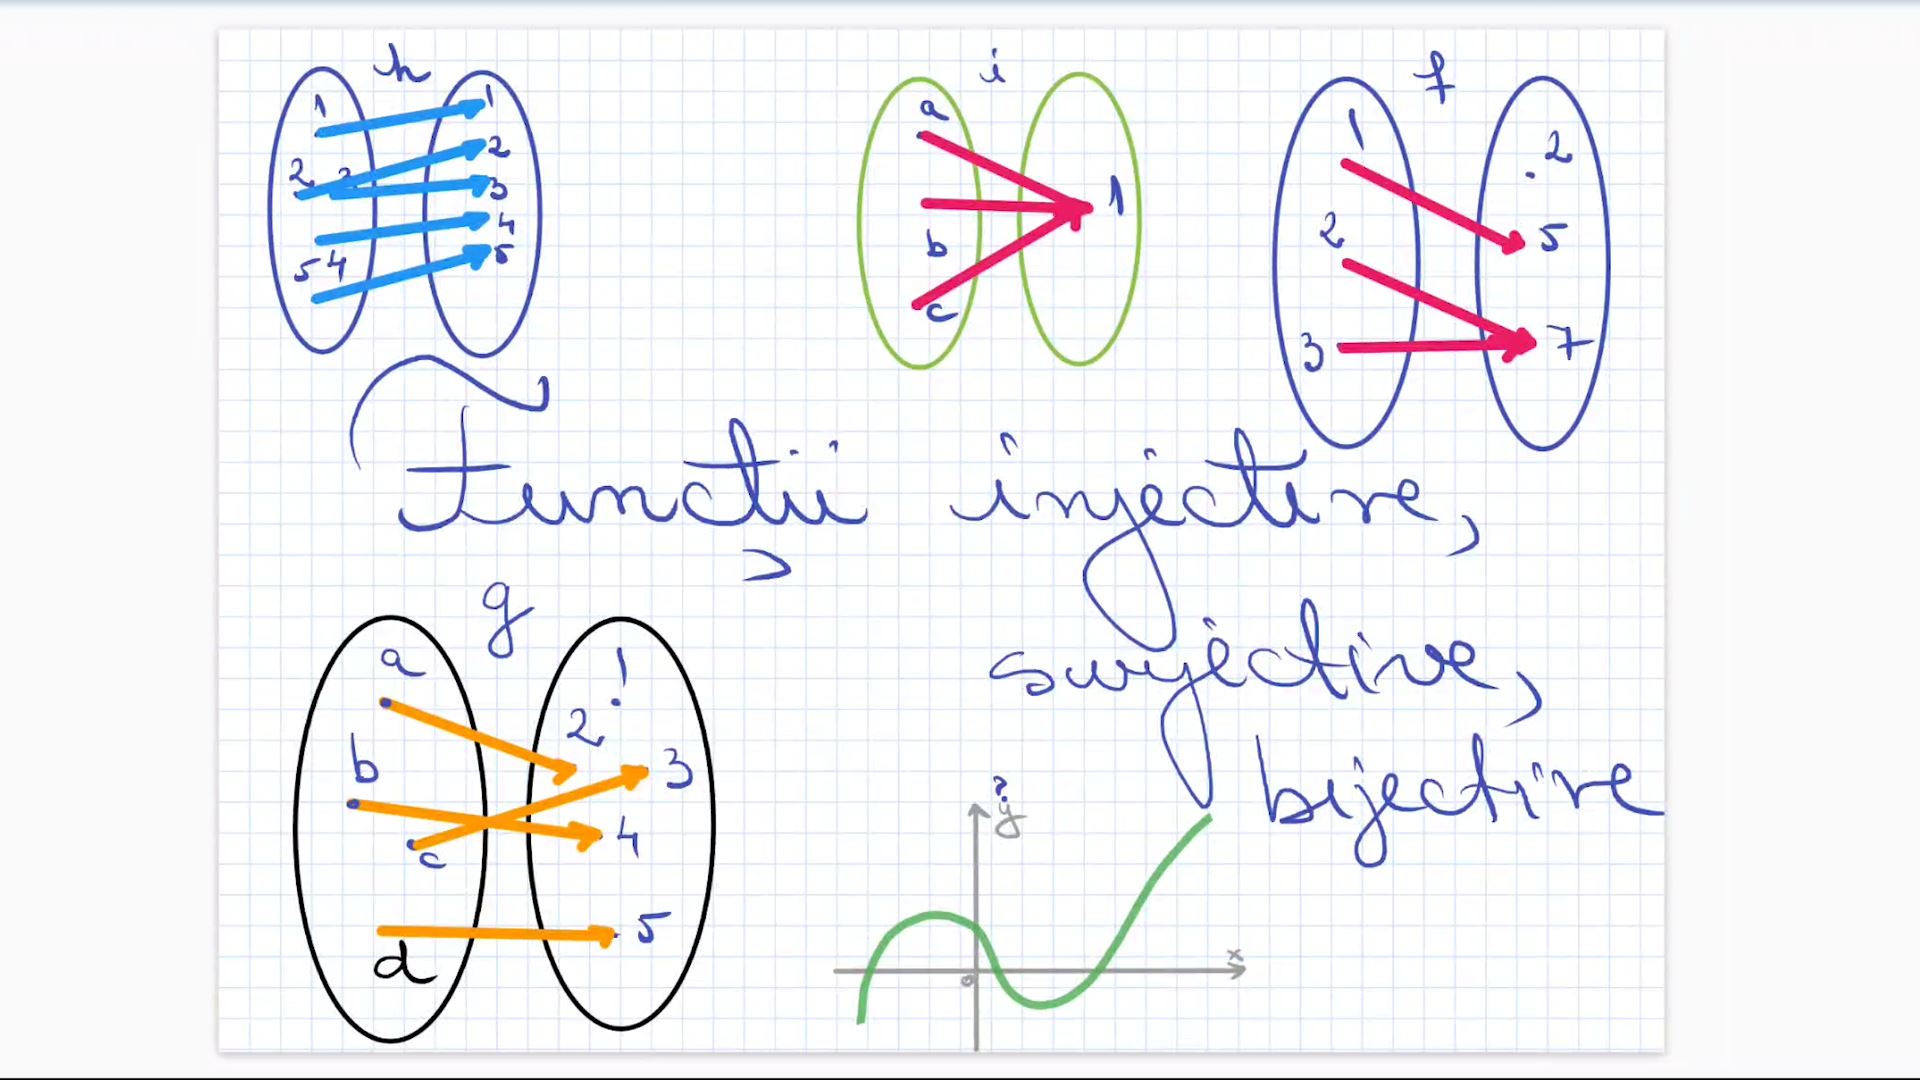 h
1
2 3
5 4
1
2
3
4
5
i
a
b
c
1
f
1
2
3
2
5
7
Funcții injective,
surjective,
bijective
g
a
b
c
d
1
2
3
4
5
?
y
x
o